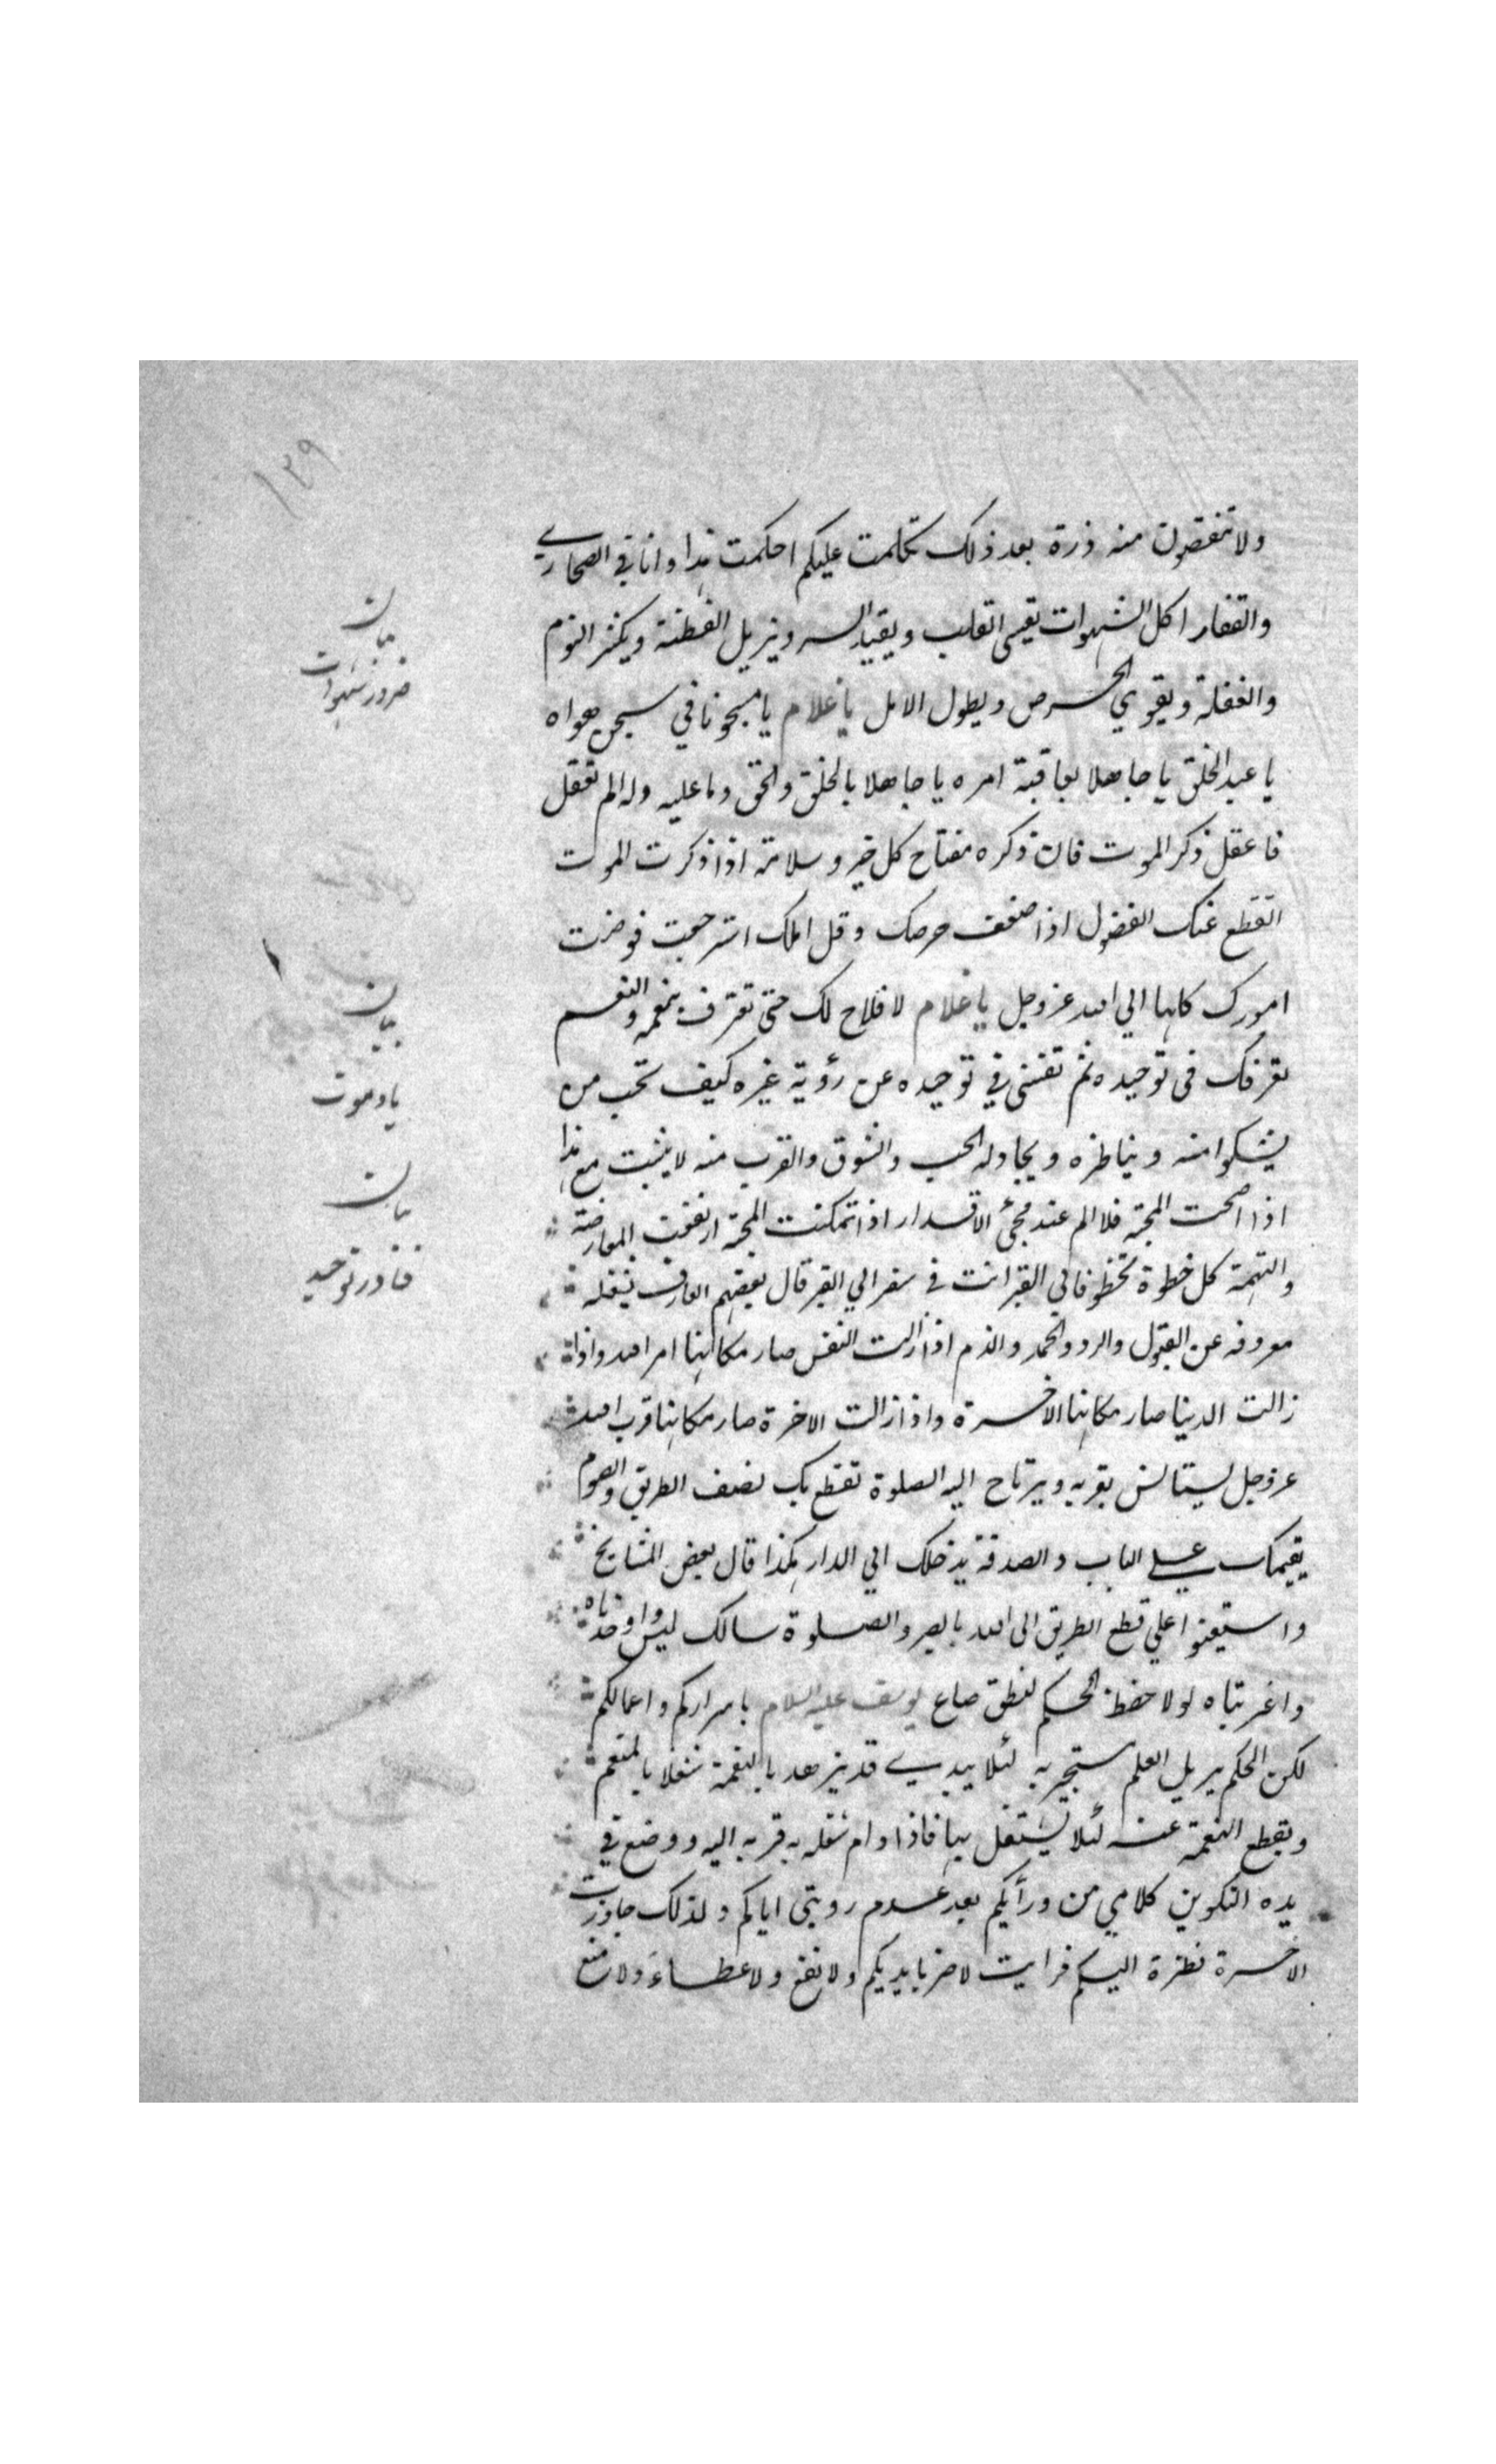 ١٣٩
ولا تنقصون منه ذرة بعد ذلك تكلمت عليكم احكمت هذا وانا في الصحاري
والقفار اكل الشهوات يقسى القلب ويقيد السر ويزيل الفطنة ويكثر النوم
والغفلة ويقوي الحرص ويطول الامل يا غلام يا مسجونا في سجن هواه
يا عبد الخلق يا جاهلا بعاقبة امره يا جاهلا بالخلق والحق وما عليه وله الم تعقل
فاعقل ذكر الموت فان ذكره مفتاح كل خير وسلامة اذا ذكرت الموت
انقطع عنك الفضول اذا ضعف حرصك وقل املك استرجعت فوضت
امورك كلها الي الله عز وجل يا غلام لا فلاح لك حتى تعترف بنعمه والنعم
تغرقك فى توحيده ثم تفنى في توحيده عن رؤية غيره كيف تحب من
يشكوا منه ويناظره ويجادله الحب والشوق والقرب منه لا يثبت مع هذا
اذا صحت المحبة فلا الم عند مجئ الاقدار اذا تمكنت المحبة ارتفعت المعارضة
والتهمة كل خطوة تخطوها الى القبر انت في سفر الي القبر قال بعضهم العارف يشغله
معروفه عن القبول والرد والحمد والذم اذا زالت النفس صار مكانها امر الله واذا
زالت الدنيا صار مكانها الاخرة واذا زالت الاخرة صار مكانها قرب الله
عز وجل يستانس بقربه ويرتاح اليه الصلوة تقطع بك نصف الطريق والصوم
يقيمك على الباب والصدقة يدخلك الي الدار هكذا قال بعض المشايخ
واستعينوا علي قطع الطريق الى الله بالصبر والصلوة سالك ليس واوحدتاه
واغربتاه لولا حفظ الحكم لنطق صاع يوسف عليه السلام باسراركم واعمالكم
لكن الحكم يريل العلم مستجير به لئلا يبدي قد يزهد بالنعمة شغلا بالمنعم
ويقطع النعمة عنه لئلا يشتغل بها فاذا دام شغله به قربه اليه ووضع في
يده التكوين كلامي من ورائكم بعد عدم رويتى اياكم ولذلك جاوزت
الاخرة نظرة اليكم فرايت لا ضر بايديكم ولا نفع ولا عطاء ولا منع
بيان
ضرور شهوات
بيان
ياد موت
بيان
فنا در توحيد